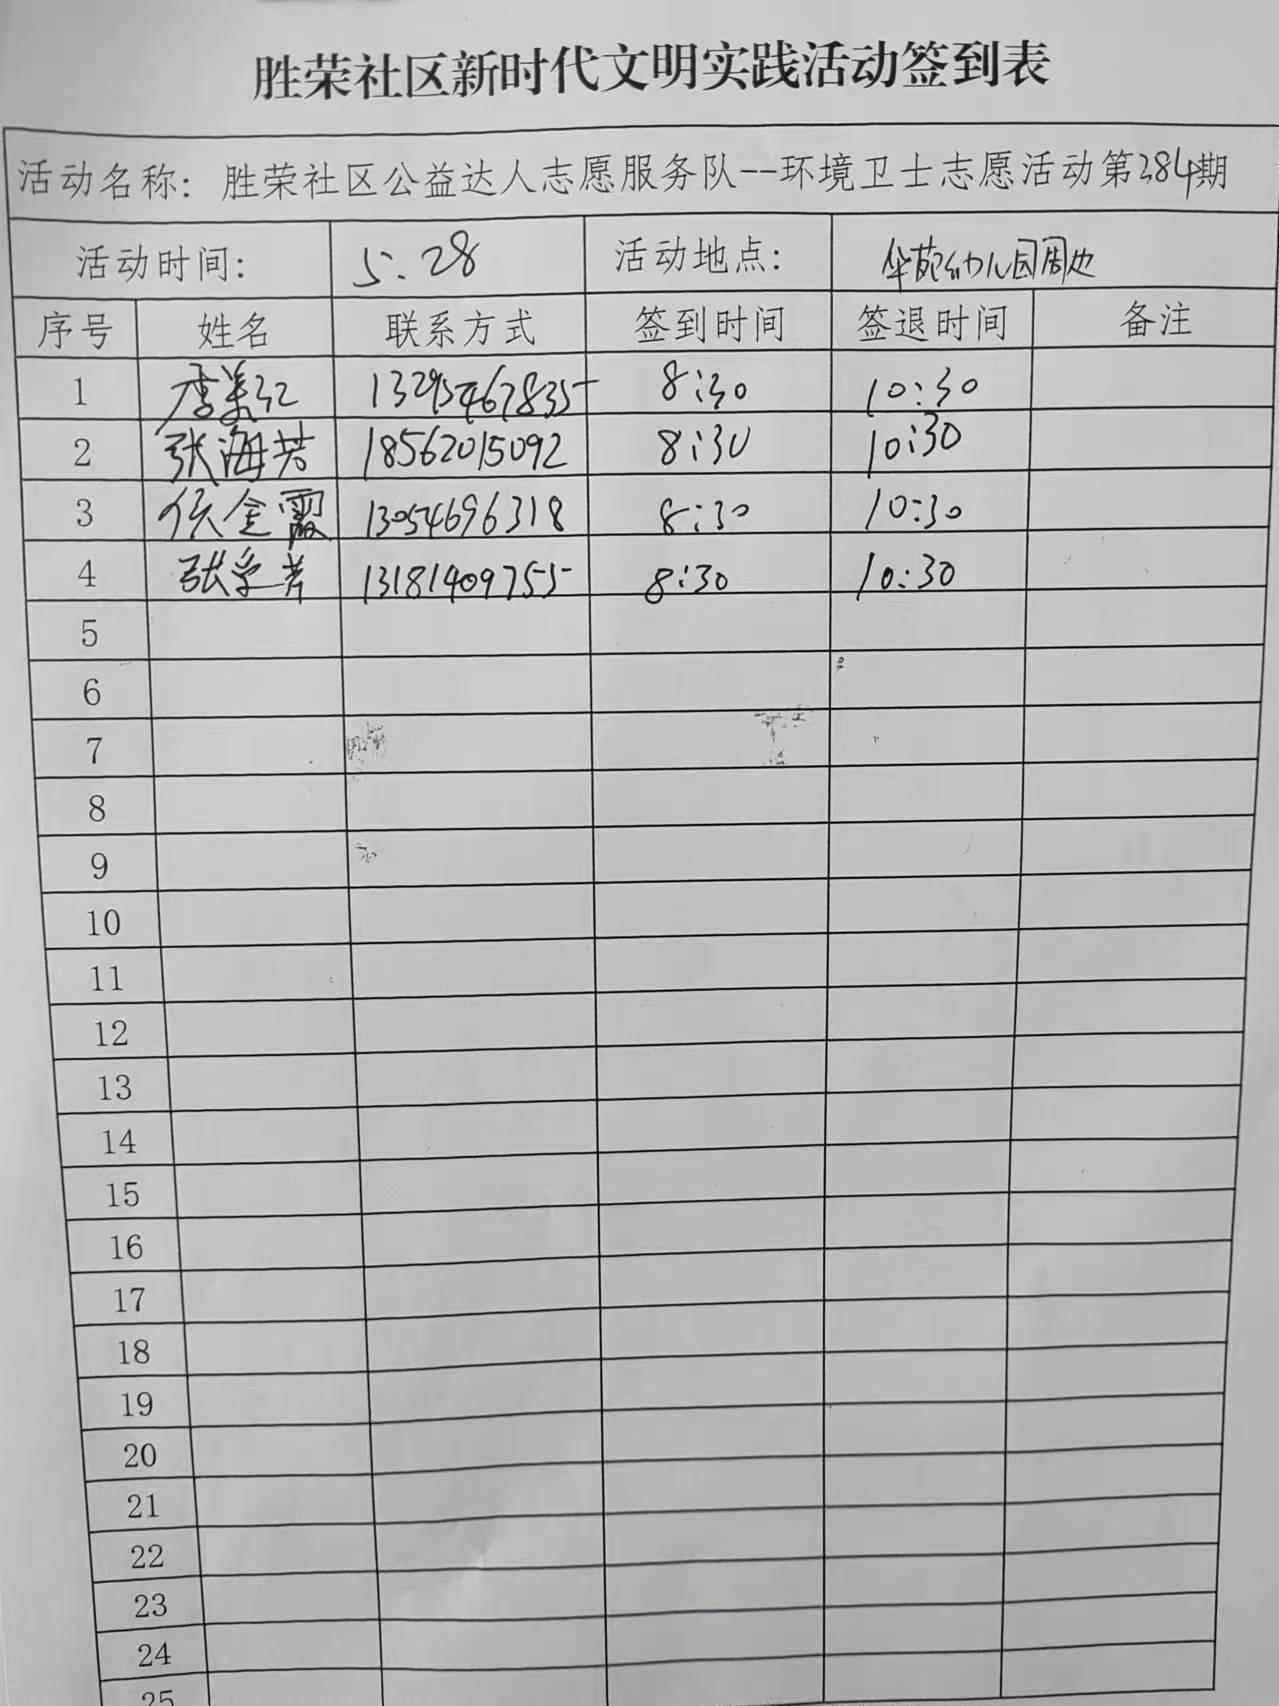 胜荣社区新时代文明实践活动签到表
活动名称：胜荣社区公益达人志愿服务队--环境卫士志愿活动第284期
活动时间： 5.28 活动地点： 华苑幼儿园周边
序号 姓名 联系方式 签到时间 签退时间 备注
1 李美红 13295467835 8:30 10:30
2 张海芳 18562015092 8:30 10:30
3 侯金霞 13054696318 8:30 10:30
4 张 13181409755 8:30 10:30
5
6
7
8
9
10
11
12
13
14
15
16
17
18
19
20
21
22
23
24
25